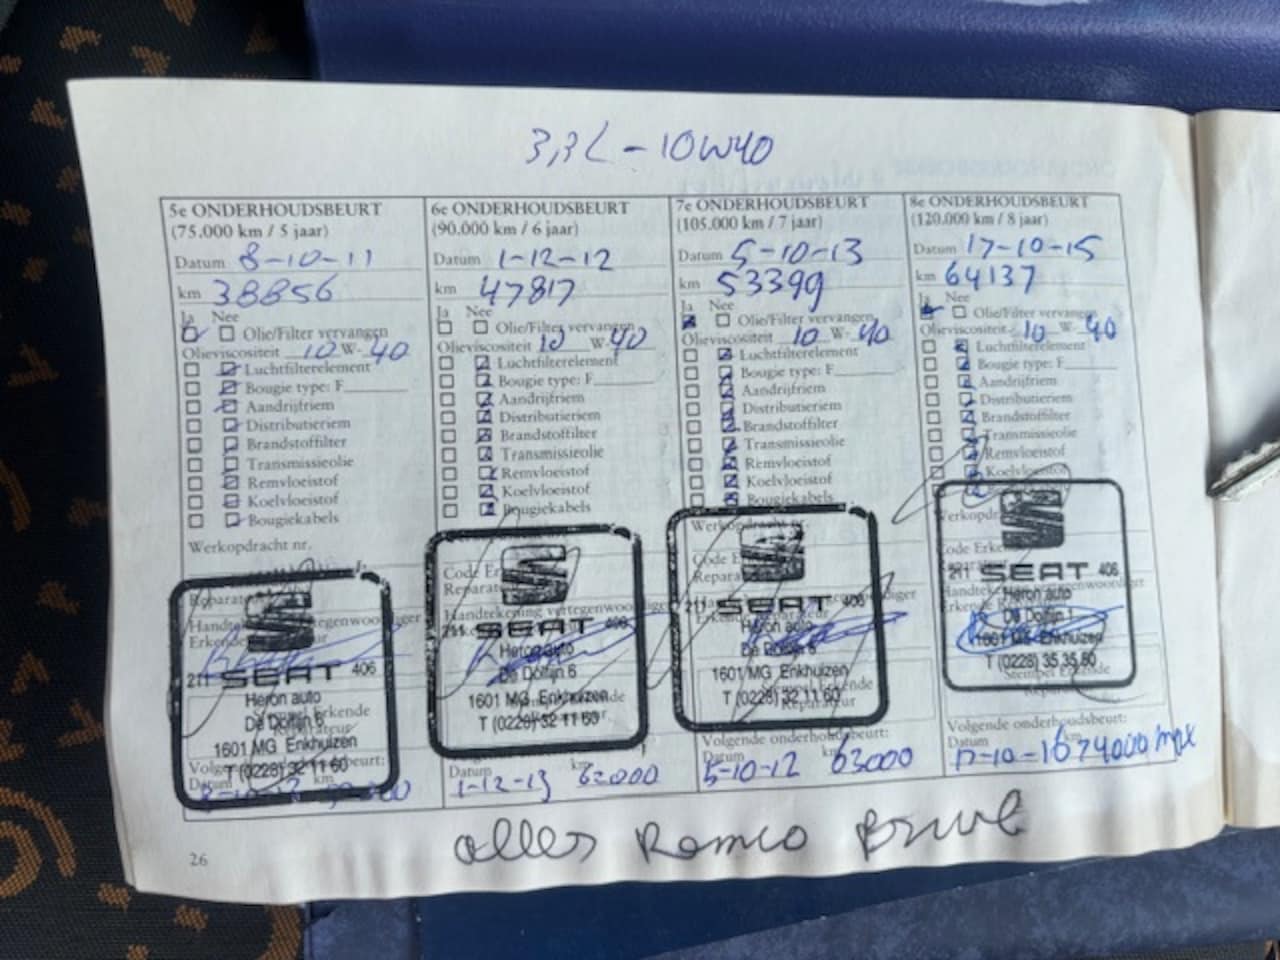 3,3L - 10W40
5e ONDERHOUDSBEURT
(75.000 km / 5 jaar)
Datum 8-10-11
km 38856
Ja Nee
Olie/Filter vervangen
Olieviscositeit 10 W- 40
Luchtfilterelement
Bougie type: F
Aandrijfriem
Distributieriem
Brandstoffilter
Transmissieolie
Remvloeistof
Koelvloeistof
Bougiekabels
Werkopdracht nr.
211 SEAT 406
Heron auto
De Dolfijn 6
1601 MG Enkhuizen
T (0228) 32 11 60
Datum km
6e ONDERHOUDSBEURT
(90.000 km / 6 jaar)
Datum 1-12-12
km 47817
Ja Nee
Olie/Filter vervangen
Olieviscositeit 10 W- 40
Luchtfilterelement
Bougie type: F
Aandrijfriem
Distributieriem
Brandstoffilter
Transmissieolie
Remvloeistof
Koelvloeistof
Bougiekabels
Handtekening vertegenwoordiger
211 SEAT 406
Heron auto
De Dolfijn 6
1601 MG Enkhuizen
T (0228) 32 11 60
Datum km
1-12-13 62000
7e ONDERHOUDSBEURT
(105.000 km / 7 jaar)
Datum 5-10-13
km 53399
Ja Nee
Olie/Filter vervangen
Olieviscositeit 10 W- 40
Luchtfilterelement
Bougie type: F
Aandrijfriem
Distributieriem
Brandstoffilter
Transmissieolie
Remvloeistof
Koelvloeistof
Bougiekabels
Werkopdracht nr.
211 SEAT 406
Heron auto
De Dolfijn 6
1601 MG Enkhuizen
T (0228) 32 11 60
Volgende onderhoudsbeurt:
Datum km
5-10-12 63000
8e ONDERHOUDSBEURT
(120.000 km / 8 jaar)
Datum 17-10-15
km 64137
Ja Nee
Olie/Filter vervangen
Olieviscositeit 10 W- 40
Luchtfilterelement
Bougie type: F
Aandrijfriem
Distributieriem
Brandstoffilter
Transmissieolie
Remvloeistof
Koelvloeistof
211 SEAT 406
Heron auto
De Dolfijn 1
1601 MG Enkhuizen
T (0228) 35 35 80
Stempel Erkende
Reparateur
Volgende onderhoudsbeurt:
Datum km
17-10-16 74000 max
alles Remco
26